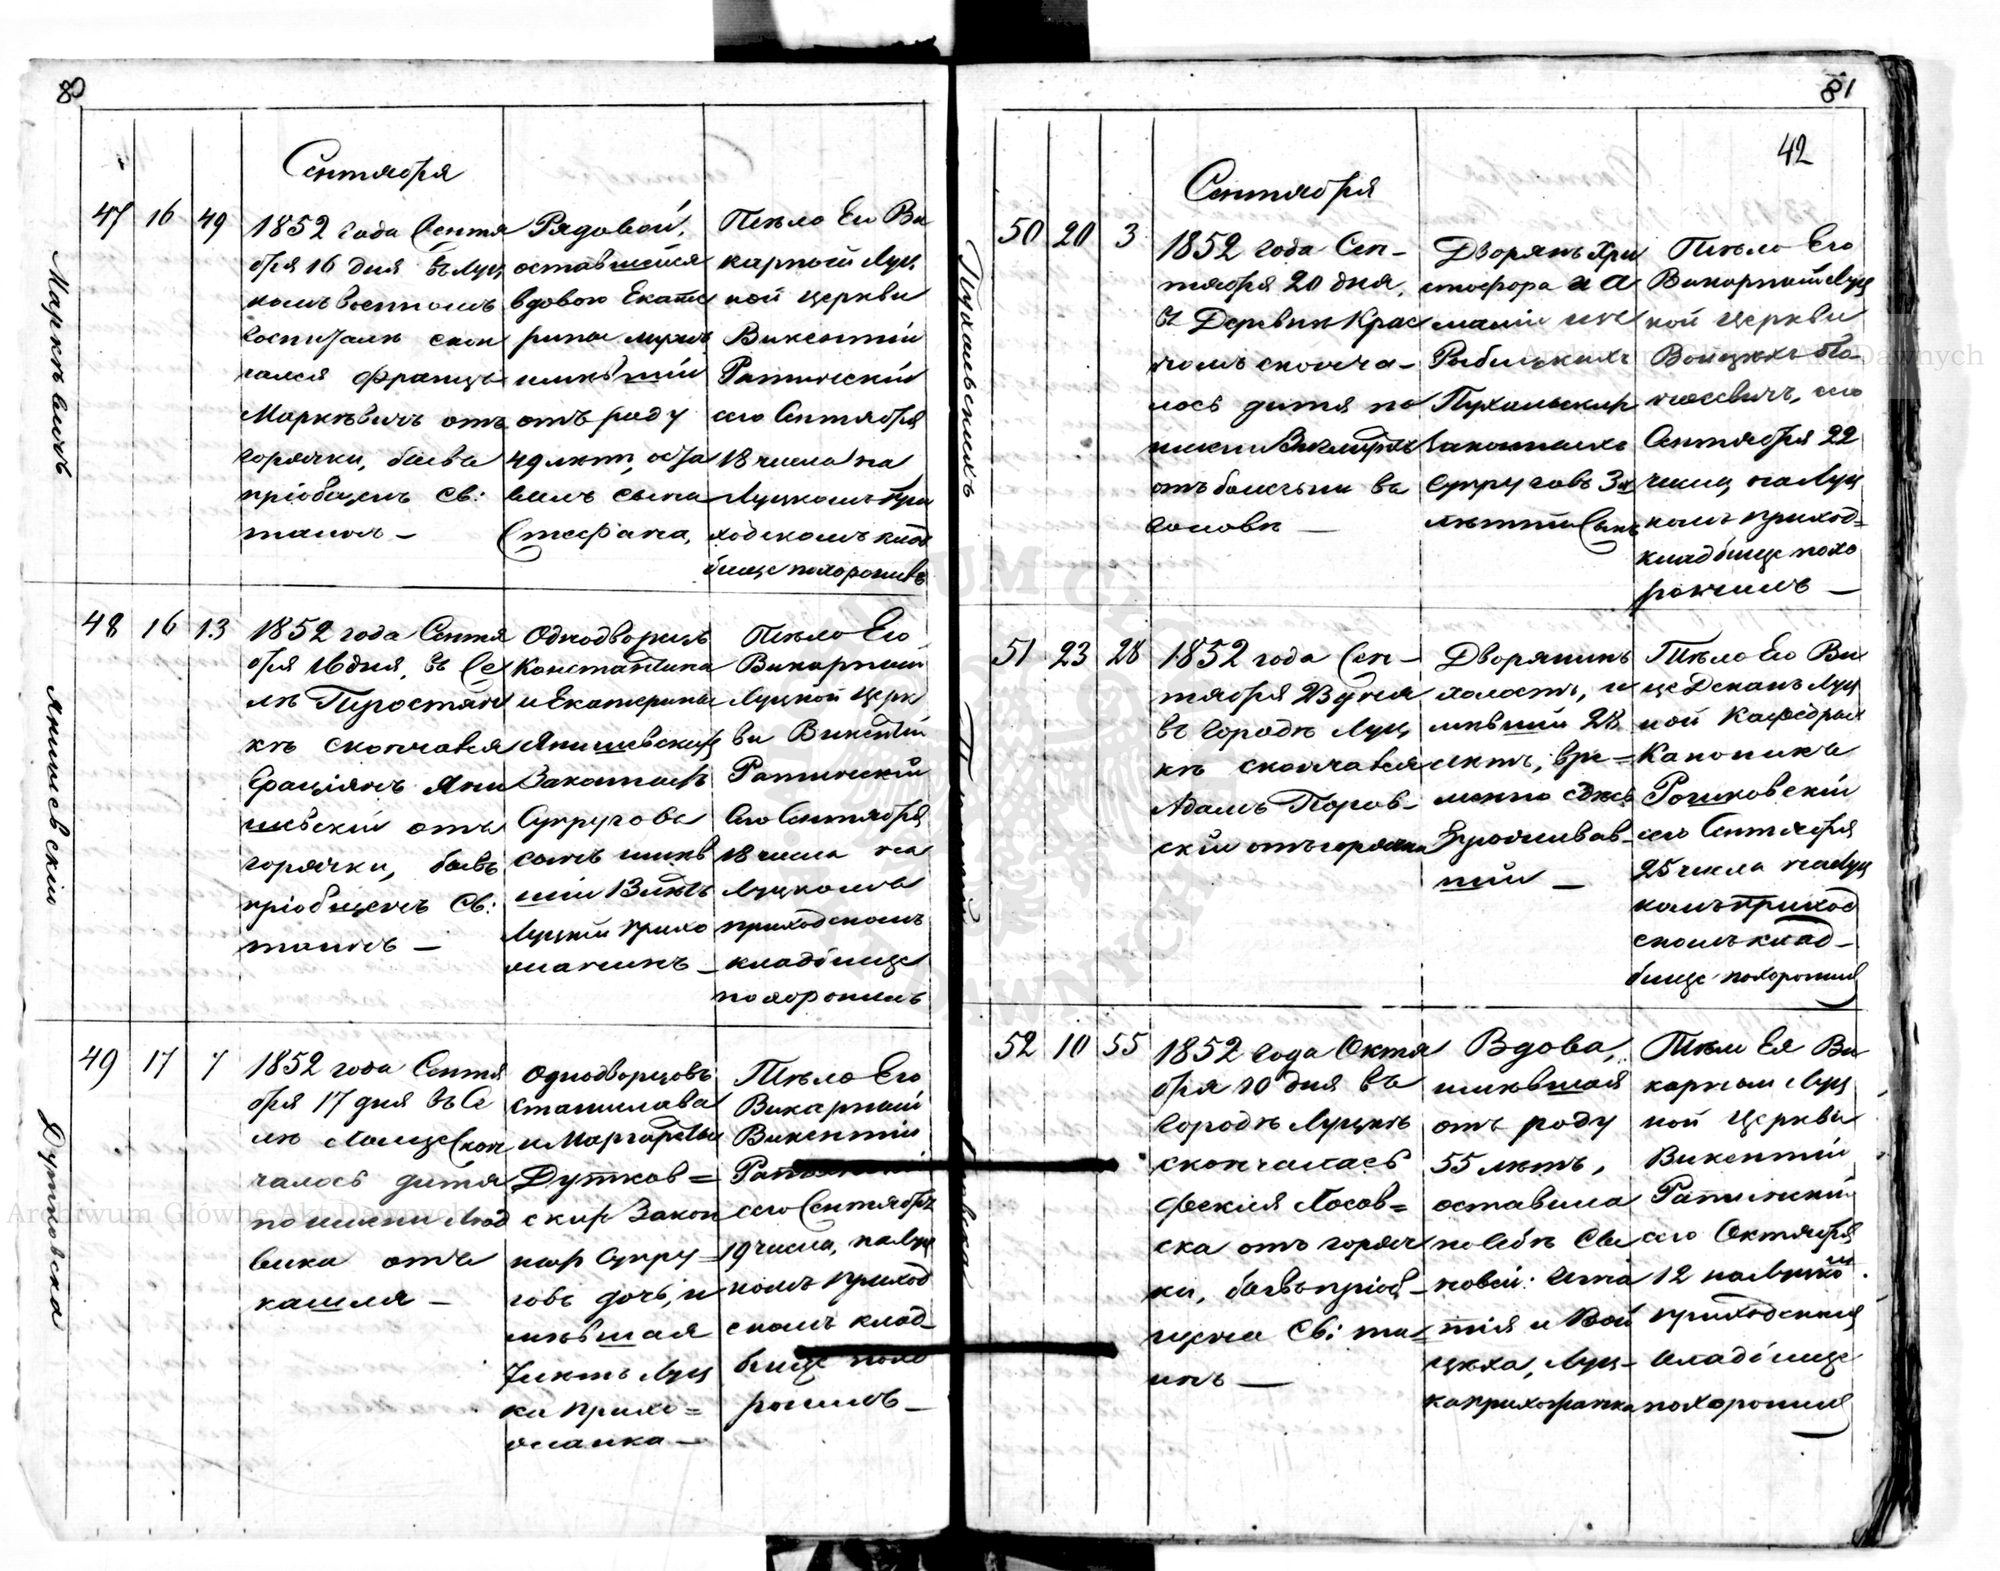 80
Сентября
Маркѣвичъ
47 16 49
1852 года Сентя
бря 16 дня въ Луц
комъ военномъ
госпиталѣ скон
чался Францъ
Маркѣвичъ отъ
горячки, бывъ
пріобщенъ Св:
таинъ —
Рядовой,
оставшейся
вдовою Екате
рины мужъ,
имѣвшій
отъ роду
49 лѣтъ, оста
вилъ сына
Стефана,
Тѣло Его Ви
карный Луц
кой церкви
Викентій
Ратинскій
сего Сентября
18 числа на
Луцкомъ При
ходскомъ клад
бище похоронивъ
Янишевскій
48 16 13
1852 года Сентя
бря 16 дня, въ Се
лѣ
кѣ скончался
Граціянъ Яни
шевскій отъ
горячки, бывъ
пріобщенъ Св:
таинъ —
Однодворцевъ
Константина
и Екатерины
Янишевскихъ
Законныхъ
Супруговъ
сынъ имѣв
шій 13 лѣтъ
Луцкій прихо
жанинъ —
Тѣло Его
Викарный
Луцкой Церк
ви Викентій
Ратинскій
Сего Сентября
18 числа на
Луцкомъ
приходскомъ
кладбище
похоронилъ
Дутковска
49 17 7
1852 года Сентя
бря 17 дня въ Се
лѣ Скон
чалось дитя
по имени Люд
вика отъ
кашля —
Однодворцовъ
Станислава
и Маргареты
Дутков=
скихъ Закон
ныхъ Супру=
говъ дочь, и
мѣвшая
7 лѣтъ Луц
ка прихо=
жанка —
Тѣло Его
Викарный
Викентій
Ратинскій
сего Сентября
19 числа, на Луц
комъ приход
скомъ клад-
бище похо
ронилъ —
81
42
Сентября
Пухальскихъ
50 20 3
1852 года Сен-
тября 20 дня,
въ Деревнѣ Крас
номъ сконча-
лось дитя по
имени
отъ болезни въ
головѣ —
Дворянъ Хри
стофора и А
маліи
Пухальскихъ
законныхъ
Супруговъ 3хъ
лѣтній Сынъ
Тѣло Его
Викарный Луц
кой Церкви
Войцехъ
сего
Сентября 22
числа, на Луц
комъ приход=
кладбище похо
ронилъ —
51 23 28
1852 года Сен-
тября 23 дня
въ городѣ Луц
кѣ скончался
Адамъ Поров-
скій отъ горячки
Дворянинъ
холостъ, и
мѣвшій 28
лѣтъ, вре=
менно здѣсь
проживав-
шій —
Тѣло Его Ви
це Деканъ Луц
кой Кафедры
Каноникъ
сего Сентября
25 числа на Луц
комъ приход
скомъ клад-
бище похоронилъ
52 10 55
1852 года Октя
бря 10 дня въ
городѣ Луцкѣ
скончалась
Фекля Лосов=
ска отъ горяч
ки, бывъ пріоб-
щена Св: та=
инъ —
Вдова,
имѣвшая
отъ роду
55 лѣтъ,
оставила
по себѣ Сы
новей: Игна
тія и Вой
цѣха, Луц-
ка прихожанка
Тѣло Ея Ви
карный Луц
кой Церкви
Викентій
Ратинскій
сего Октября
12 на Луцкомъ
приходскомъ
кладбище
похоронилъ
Archiwum Główne Akt Dawnych
Archiwum Główne Akt Dawnych